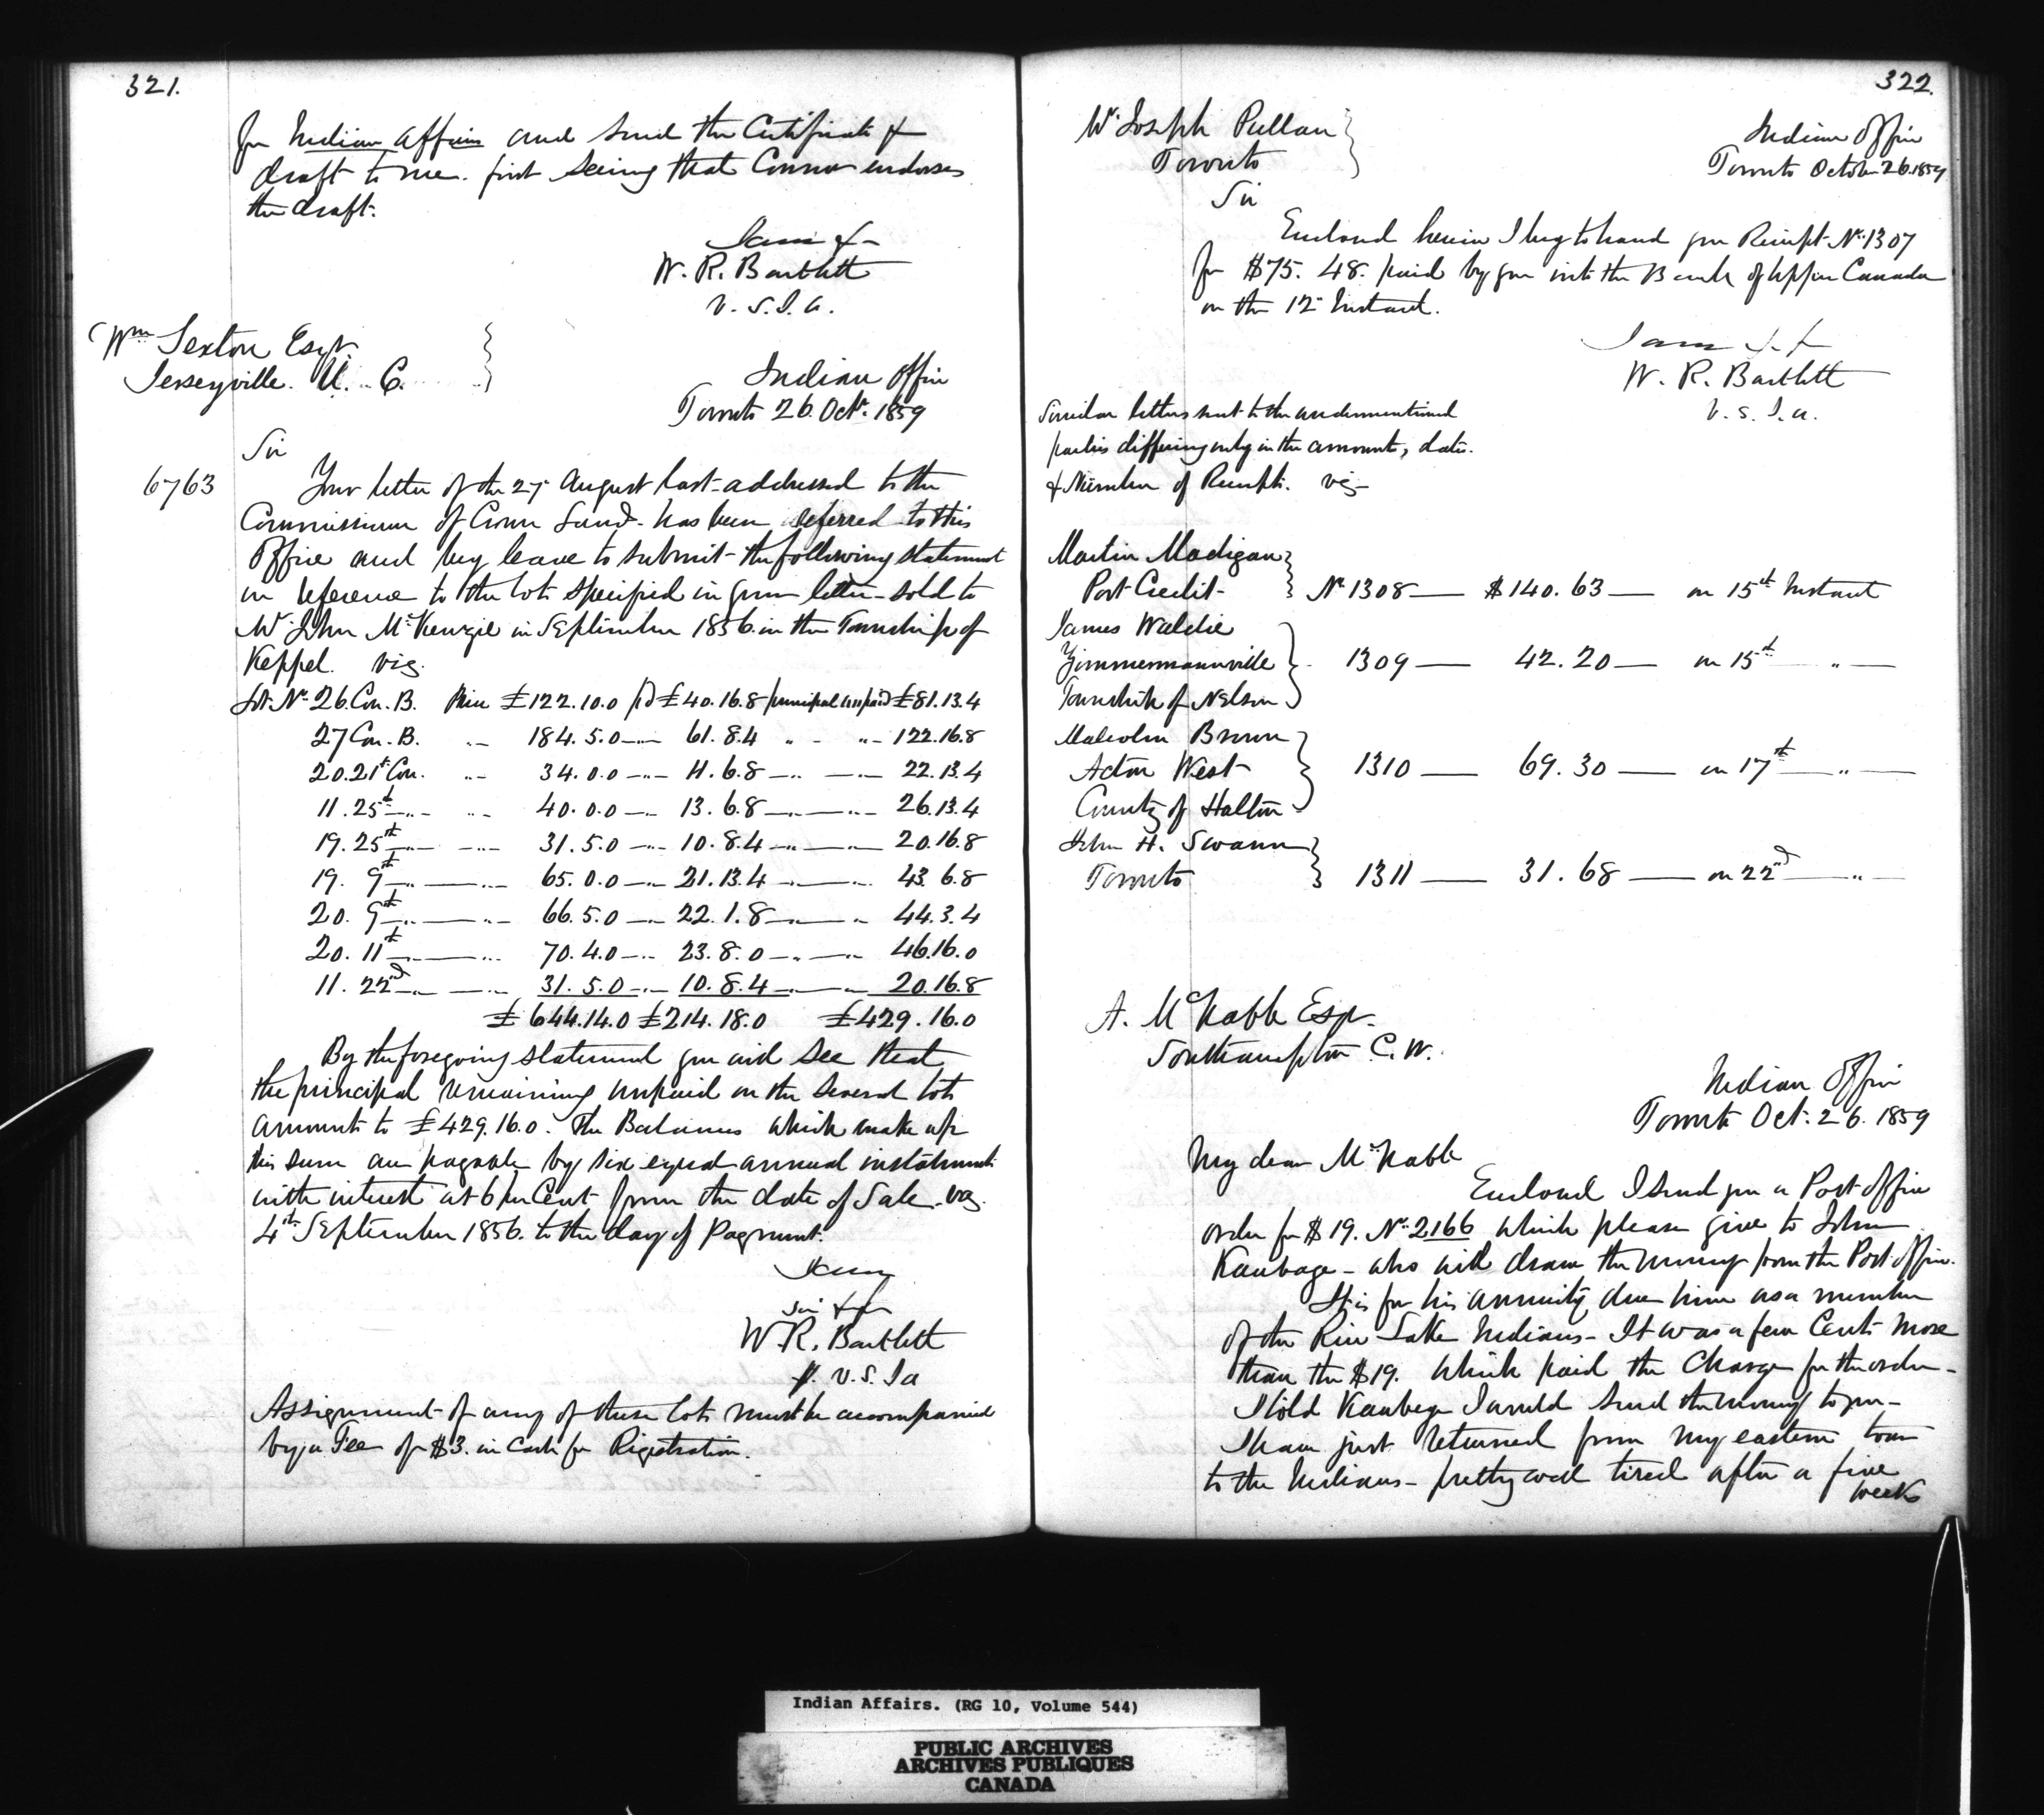 321.
for Indian Affairs and send the Certificate &
draft to me. first seeing that Connor endorses
the draft.
I am &-
W. R. Bartlett
V. S. I. A.
Wm Sexton Esqr.
Jerseyville. U. C.
Indian Office
Toronto 26. Octr. 1859
Sir
6763
Your letter of the 27th August last addressed to the
Commissioner of Crown Lands has been referred to this
Office and beg leave to submit the following statement
in reference to the lots specified in your letter sold to
Mr John McKenzie in September 1856. in the Township of
Keppel. viz.
Lot No. 26. Con. B. Price £122.10.0 pd £40.16.8 principal unpaid £81.13.4
27 Con. B. " 184.5.0 — 61.8.4 " " 122.16.8
20. 21st Con. " 34.0.0 — 11.6.8 — " — 22.13.4
11. 25th — " — " 40.0.0 — 13.6.8 — " — 26.13.4
19. 25th — " — 31.5.0 — 10.8.4 — " — 20.16.8
19. 9th — " — 65.0.0 — 21.13.4 — " — 43.6.8
20. 9th — " — 66.5.0 — 22.1.8 — " — 44.3.4
20. 11th — " — 70.4.0 — 23.8.0 — " — 46.16.0
11. 22nd — " — 31.5.0 — 10.8.4 — " — 20.16.8
£644.14.0 £214.18.0 £429.16.0
By the foregoing statement you will see that
the principal remaining unpaid on the several lots
amounts to £429.16.0. The Balances which make up
this sum are payable by six equal annual instalments
with interest at 6 per Cent from the date of Sale. viz.
4th September 1856. to the day of Payment.
I am
Sir &c
W. R. Bartlett
V. S. I A
Assignment of any of these lots must be accompanied
by a Fee of $3. in Cash for Registration.
322.
Mr. Joseph Pullan
Toronto
Indian Office
Toronto October 26. 1859
Sir
Enclosed herein I beg to hand you Receipt No. 1307
for $75.48. paid by you into the Bank of Upper Canada
on the 12th Instant.
I am &.&
W. R. Bartlett
V. S. I. A.
Similar letters sent to the undermentioned
parties differing only in the amounts, date.
& Number of Receipt. viz—
Martin Madigan
Port Credit — No 1308 — $140.63 — on 15th Instant
James Waldie
Zimmermanville — 1309 — 42.20 — on 15th — " —
Township of Nelson
Malcolm Brown
Acton West — 1310 — 69.30 — on 17th — " —
County of Halton
John H. Swann
Toronto — 1311 — 31.68 — on 22nd — " —
A. McNabb Esqr.
Southampton C. W.
Indian Office
Toronto Oct. 26. 1859
My dear McNabb
Enclosed I send you a Post Office
order for $19. No. 2166 which please give to John
Kaubage - who will draw the money from the Post Office.
It is for his annuity due him as a member
of the Rice Lake Indians - It was a few Cents more
than the $19. which paid the Charge for the order -
I told Kaubege I would send the money to you -
I have just returned from my eastern tour
to the Indians - pretty well tired after a five
weeks
Indian Affairs. (RG 10, Volume 544)
PUBLIC ARCHIVES
ARCHIVES PUBLIQUES
CANADA